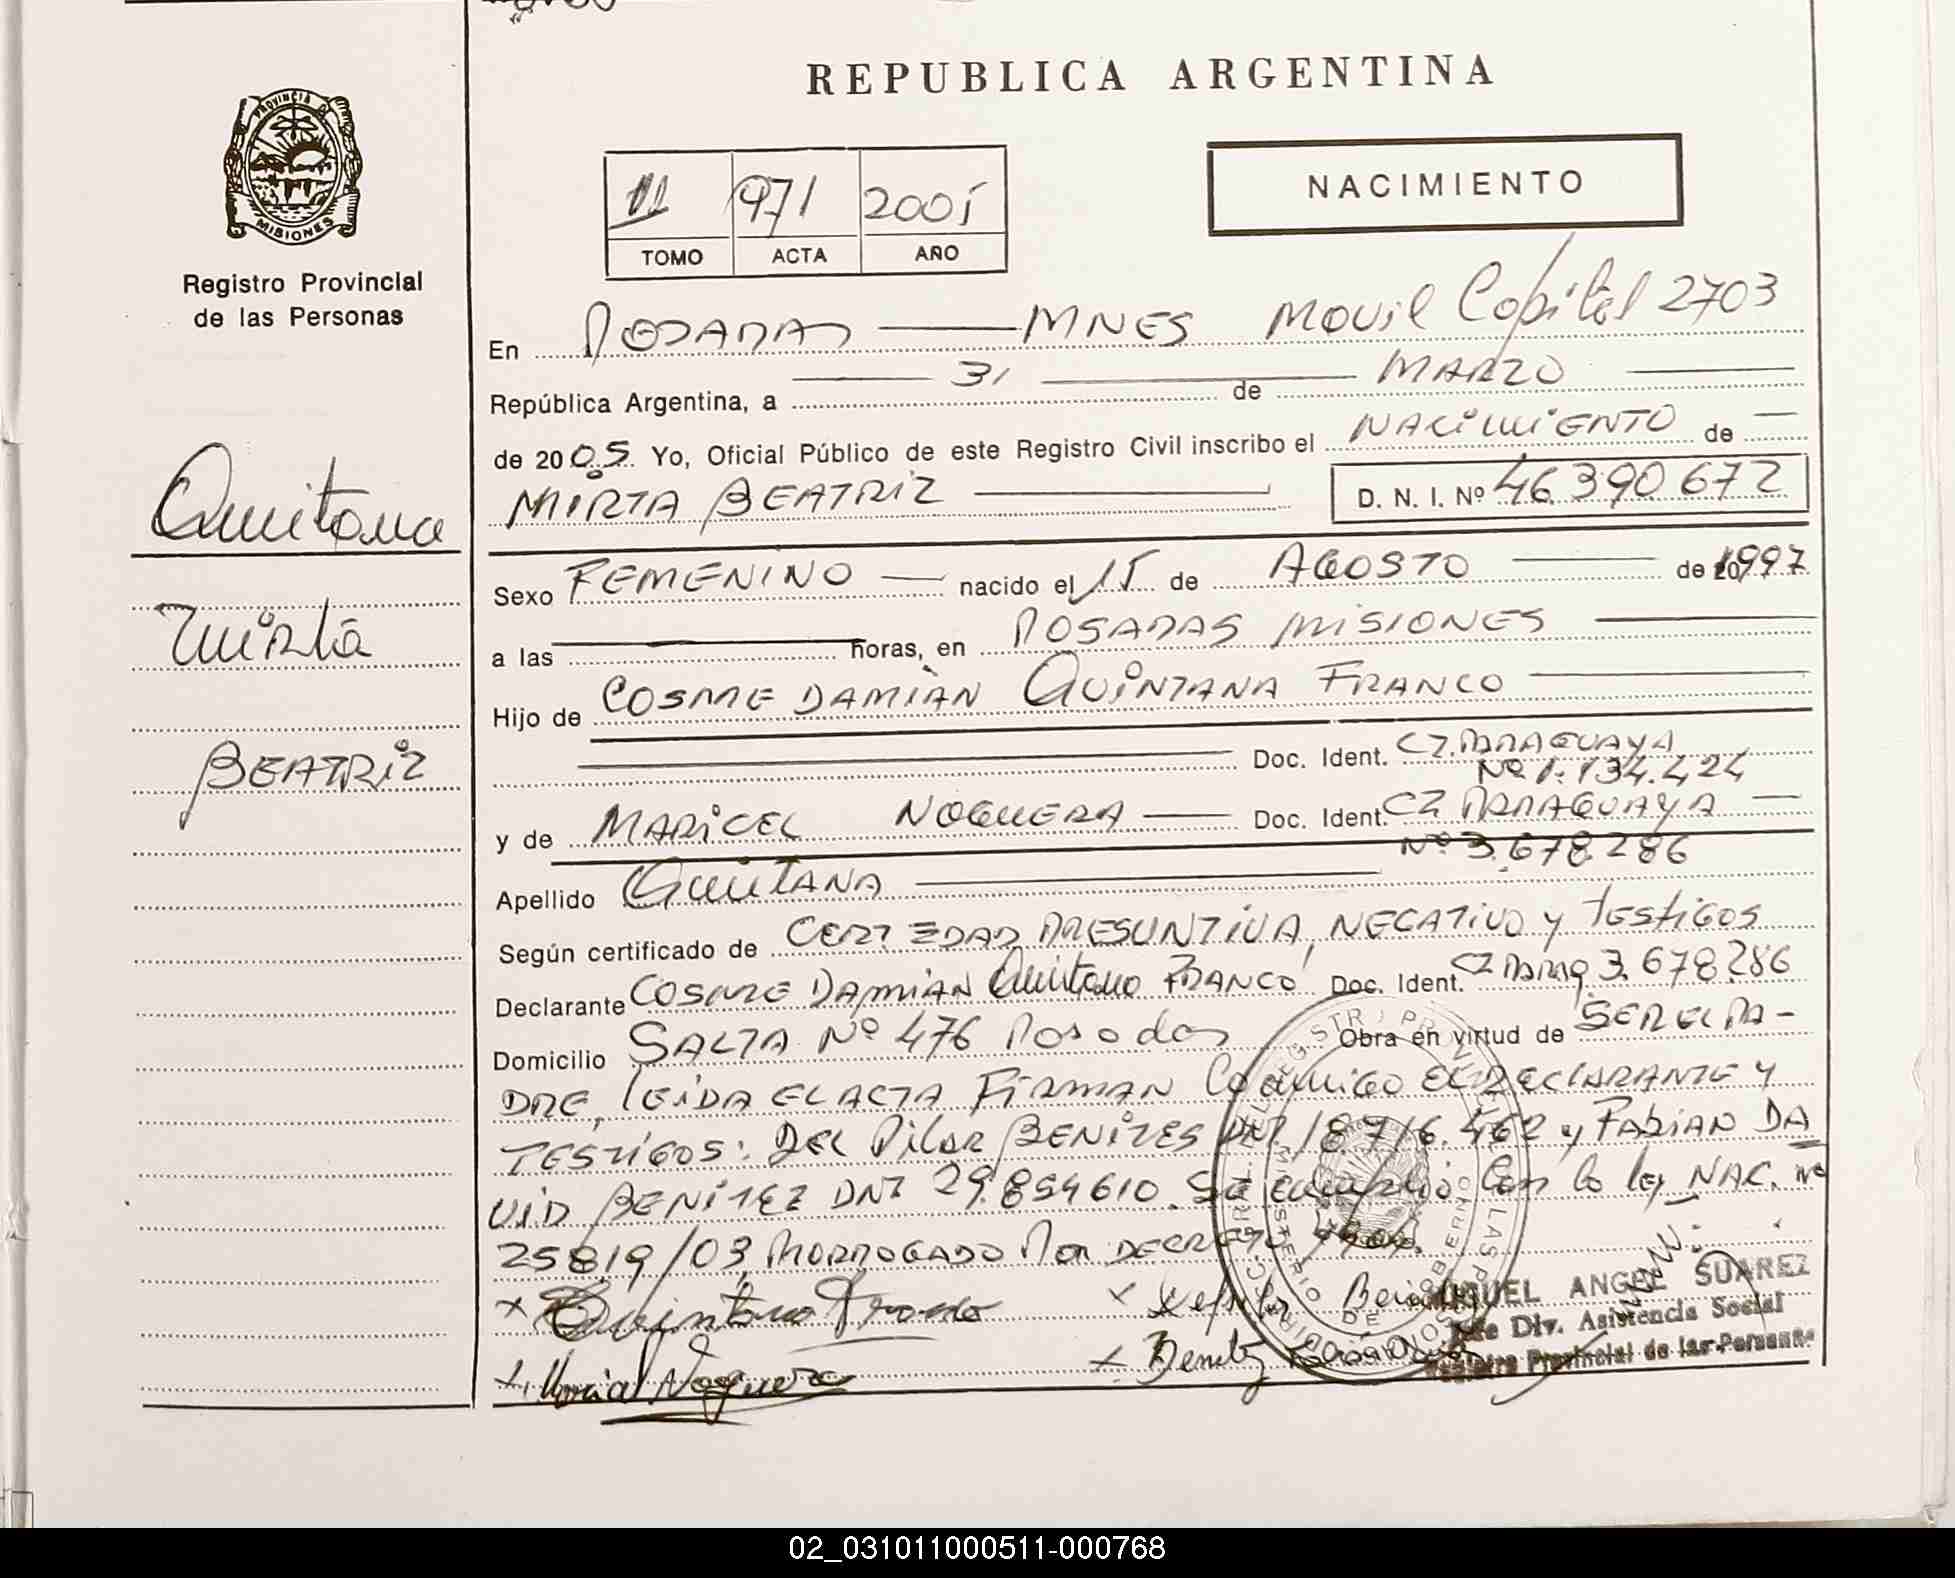 REPUBLICA ARGENTINA
PROVINCIA DE
MISIONES
Registro Provincial
de las Personas
11 971 2005
TOMO ACTA AÑO
NACIMIENTO
En POSADAS MNES MOVIL Capital 2703
República Argentina, a 31 de MARZO
de 2005. Yo, Oficial Público de este Registro Civil inscribo el NACIMIENTO de
MIRTA BEATRIZ D. N. I. Nº 46.390.672
Quintana
Mirta
BEATRIZ
Sexo FEMENINO nacido el 15 de AGOSTO de 1997
a las horas, en POSADAS MISIONES
Hijo de COSME DAMIAN QUINTANA FRANCO
Doc. Ident. CI. PARAGUAYA
Nº 1.134.424
y de MARICEL NOGUERA Doc. Ident. CI PARAGUAYA
Nº 3.678.286
Apellido QUINTANA
Según certificado de CERT EDAD PRESUNTIVA, NEGATIVO y TESTIGOS
Declarante COSME DAMIAN Quintana FRANCO Doc. Ident. CI Parag 3.678.286
Domicilio SALTA Nº 476 Posadas Obra en virtud de SER EL PA-
DRE, LEIDA EL ACTA FIRMAN Conmigo EL DECLARANTE y
TESTIGOS: DEL Pilar BENITES DNI 18.716.462 y FABIAN DA
VID BENITEZ DNI 29.854610. Se cumplio Con la ley NAC. Nº
25819/03, PRORROGADO POR DECRETO
x Quintana Franco x Benitez
x Maricel Noguera x Benitez
MIGUEL ANGEL SUAREZ
Jefe Div. Asistencia Social
Registro Provincial de las Personas
02_031011000511-000768